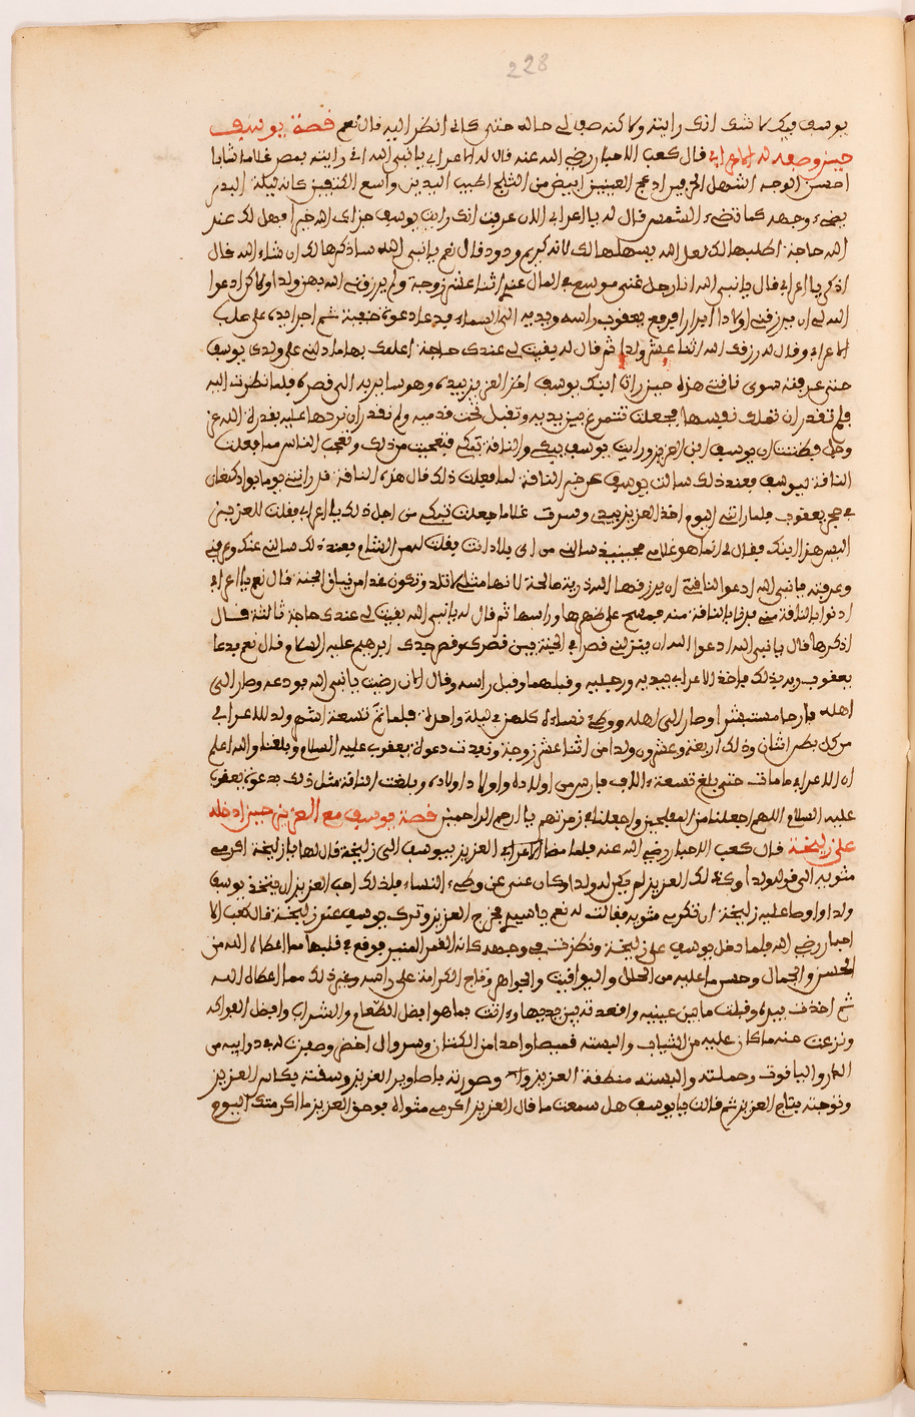 228
يوسف فيك لا شك انك رايته ولاكنه صف لي حاله حتى كاني انظر اليه قال نعم قصة يوسف
حين وصفه له الاعرابي قال كعب الاحبار رضي الله عنه قال له الاعرابي يا نبي الله اني رايته بمصر غلاما شابا
احسن الوجه اشهل ادعج العينين ابيض من الثلج اليدين واسع الكتفين كانه ليلة البدر
يضيء وجهه كما تضيء الشمس قال له يا اعرابي الان عرفت انك رايت يوسف جزاك الله خيرا فهل لك عند
الله حاجة اطلبها لك لعل الله يسهلها لك لانه كريم ودود قال نعم يا نبي الله ساذكرها لك ان شاء الله قال
اذكر يا اعرابي قال يا نبي الله انا رجل غني موسع في المال عندي اثنا عشر زوجة ولم يرزقني الله بهن ولدا ولاكن ادعوا
الله لي ان يرزقني اولادا ابرارا فرفع يعقوب راسه ويديه الى السماء فدعا دعوة خفية ثم اجرا يده على صلب
الاعرابي وقال له رزقك الله اثنا عشر ولدا ثم قال له بقيت لي عندك حاجة اعلمك بها ما دلني على ولدي يوسف
حتى عرفته سوى ناقتي هذه حين راة ابنك يوسف اخذ العزيز بيده وهو ساير به الى قصره فلما نظرت اليه
فلم تقدر ان تملك نفسها فجعلت تتمرغ بين يديه وتقبل تحت قدميه ولم نقدر ان نردها عليه بقدرة الله عز
وجل فظننت ان يوسف ابن العزيز ورايت يوسف يبكي والناقة تبكي فتعجبت من ذلك وتعجب الناس مما فعلت
الناقة بيوسف فعند ذلك سالت يوسف عن خبر الناقة لما فعلت ذلك قال هذه الناقة قد راتني يوما بواد كنعان
في حجر يعقوب فلما راتني اليوم اخذ العزيز بيدي وسرت غلاما جعلت تبكي من اجل ذلك يا اعرابي فقلت للعزيز
اليس هذا ابنك فقال لي انما هو غلامي سالني من اي بلاد انت فقلت له من الشام فعند ذلك سالني عنك وعرفني
وعرفته يا نبي الله ادعوا لناقتي ان يرزقها الله ذرية صالحة لانها مثلي لا تلد وتكون غدا من نياق الجنة قال نعم يا اعرابي
ادنوا بالناقة مني فدنا بالناقة منه فمسح على ظهرها وراسها ثم قال له يا نبي الله بقيت لي عندك حاجة ثالثة قال
اذكرها قال يا نبي الله ادعوا الله ان ينزلني قصرا في الجنة بين قصرك وقصر جدك ابرهيم عليه السلام قال نعم فدعا
يعقوب ربه بذلك فاخذ الاعرابي بيديه ورجليه وقبلهما وقبل راسه وقال الان رضيت يا نبي الله فودعه وصار الى
اهله فارحا مستبشرا وصار الى اهله ووطئ نساءه كلهن في ليلة واحدة فلما تم تسعة اشهر ولد للاعرابي
من كل بطن اثنان وذلك اربعة وعشرون ولدا من اثنا عشر زوجة ونفذت دعوة يعقوب عليه السلام وبلغنا والله اعلم
ان الاعرابي ما مات حتى بلغ تسعة الاف فارس من اولاده واولاد اولاده وبلغت الناقة مثل ذلك بدعوة يعقوب
عليه السلام اللهم اجعلنا من المفلحين واجعلنا في زمرتهم يا ارحم الراحمين قصة يوسف مع العزيز حين ادخله
على زليخة قال كعب الاحبار رضي الله عنه فلما مضا الاعرابي العزيز بيوسف الى زليخة قال لها يا زليخة اكرمي
مثويه الى قوله ولدا وكان ذلك العزيز لم يكن له ولدا وكان عنين عن وطىء النساء فلذلك احب العزيز ان يتخذ يوسف
ولدا واوصا عليه زليخة ان تكرمي مثويه فقالت له نعم يا سيدي فخرج العزيز وترك يوسف عند زليخة قال كعب الا
احبار رضي الله فلما دخل يوسف على زليخة ونظرت في وجهه كانه القمر المنير فوقع في قلبها مما اعطاه الله من
الحسن والجمال وحسن ما عليه من الحلل واليواقيت والجواهر وتاج الكرامة على راسه وغير ذلك مما اعطاه الله
ثم اخذت بيده وقبلت ما بين عينيه واقعدته بين يديها واتت بما هو افضل الطعام والشراب وافضل الفواكه
ونزعت عنه ما كان عليه من الثياب والبسته قميصا واحدا من الكتان وسروال اخضر وصفرت له ذوايبه من
الدر والياقوت وحملته والبسته منطقة العزيز وصورته باصاوير العزيز وسقته بكاس العزيز
وتوجته بتاج العزيز ثم قالت يا يوسف هل سمعت ما قال العزيز اكرمي مثواه فوحق العزيز ما اكرمتك اليوم